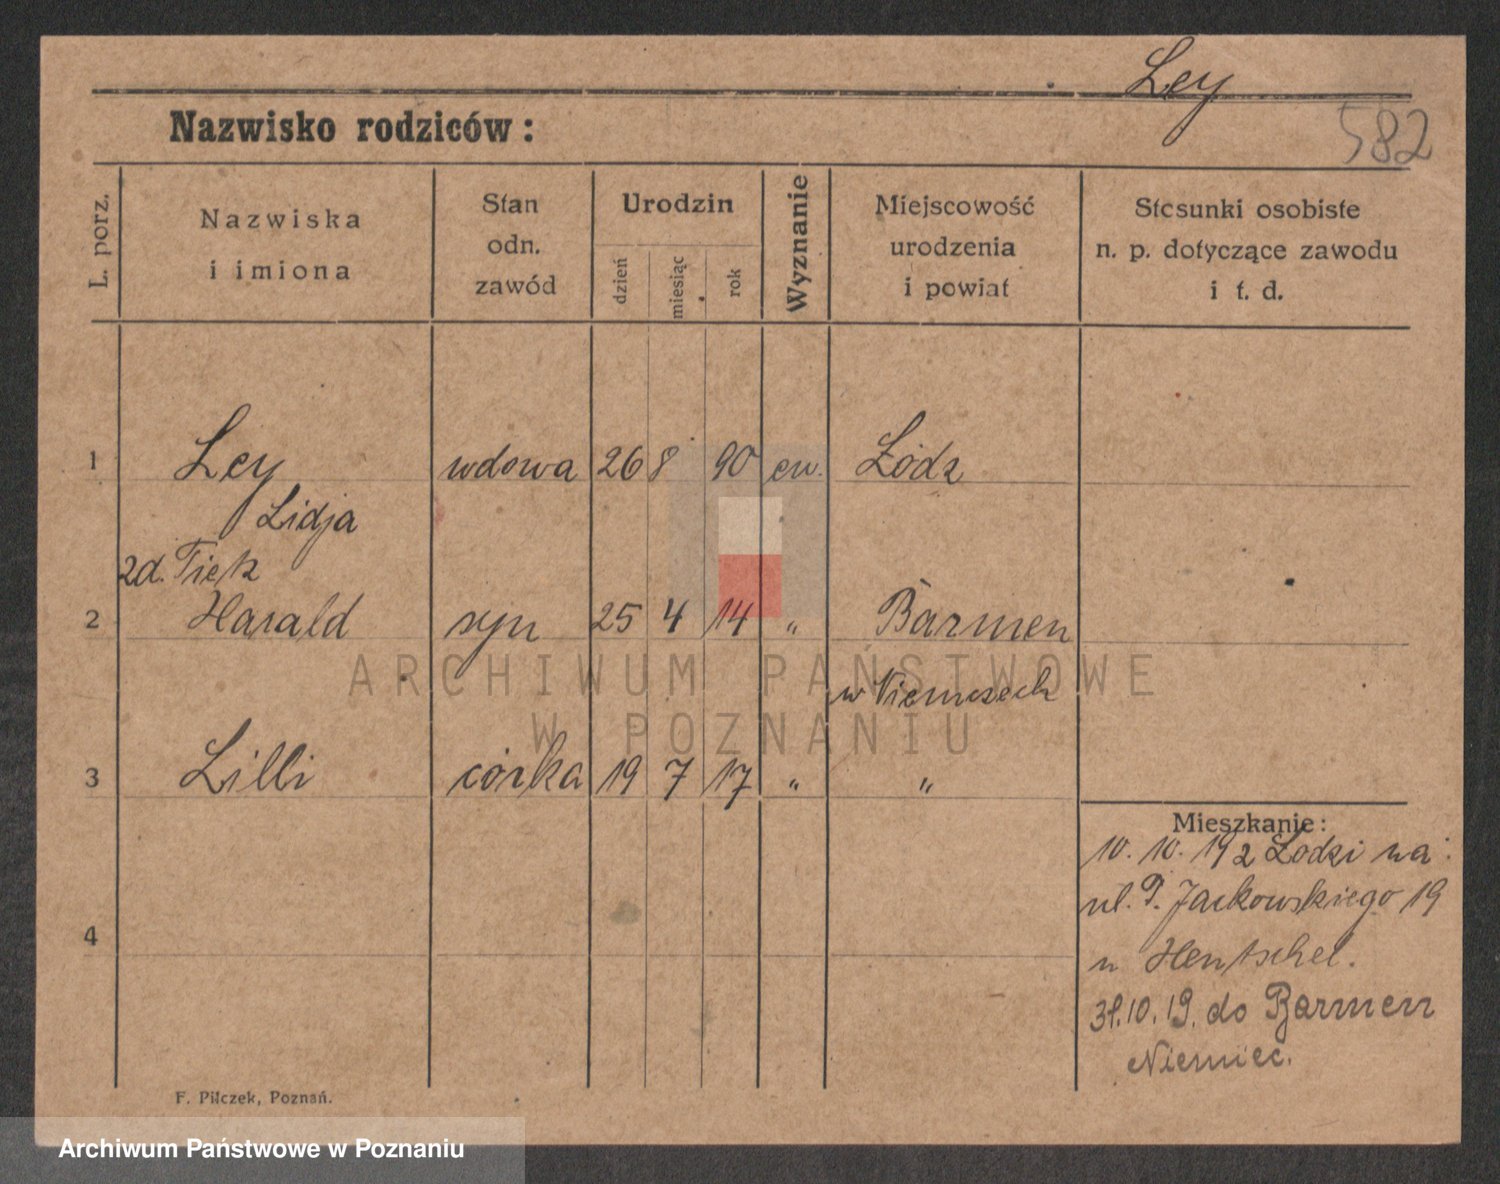 Ley
582
Nazwisko rodziców:
L. porz.
Nazwiska
i imiona
Stan
odn.
zawód
Urodzin
dzień
miesiąc
rok
Wyznanie
Miejscowość
urodzenia
i powiat
Stosunki osobiste
n. p. dotyczące zawodu
i t. d.
1 Ley wdowa 26 8 90 ew. Łódz
Lidja
zd. Tietz
2 Harald syn 25 4 14 " Barmen
w Niemczech
3 Lilli córka 19 7 17 " "
4
Mieszkanie:
10. 10. 19 z Łodzi na
ul. P. Jackowskiego 19
u Hentschel.
31.10.19. do Barmen
Niemiec.
F. Pilczek, Poznań.
ARCHIWUM PAŃSTWOWE
W POZNANIU
Archiwum Państwowe w Poznaniu